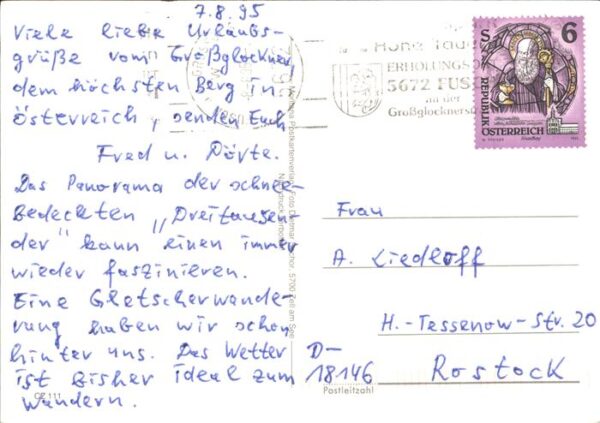 7.8.95
Viele liebe Urlaubs-
grüße vom Großglockner,
dem höchsten Berg in
Österreich, senden Euch
Fred u. Dörte.
Das Panorama der schnee-
bedeckten "Dreitausen-
der" kann einen immer
wieder faszinieren.
Eine Gletscherwande-
rung haben wir schon
hinter uns. Das Wetter
ist bisher ideal zum
Wandern.
CP 111
Postkartenverlag
5700 Zell am See
ERHOLUNGS
5672 FUS
an der
Großglocknerst
S 6
REPUBLIK
ÖSTERREICH
Frau
A. Liedloff
H.-Tessenow-Str. 20
D-
18146 Rostock
Postleitzahl